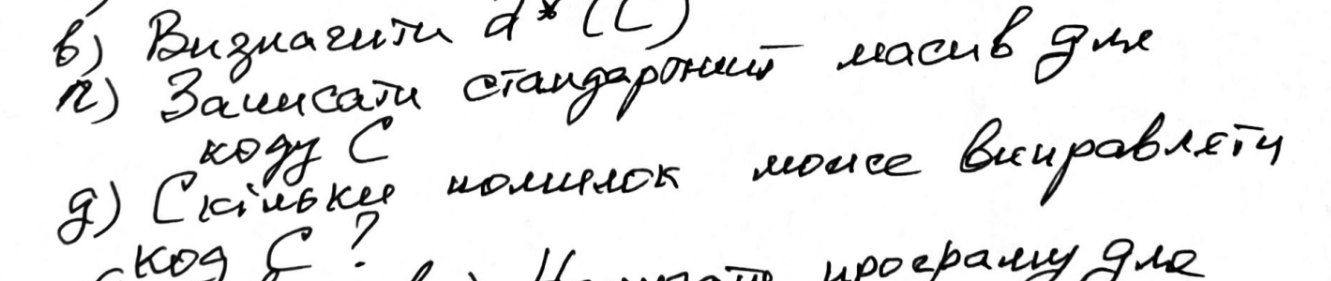 в) Визначити d*(C)
г) Записати стандартний масив для
коду C
д) Скільки помилок може виправляти
код C?
програму для